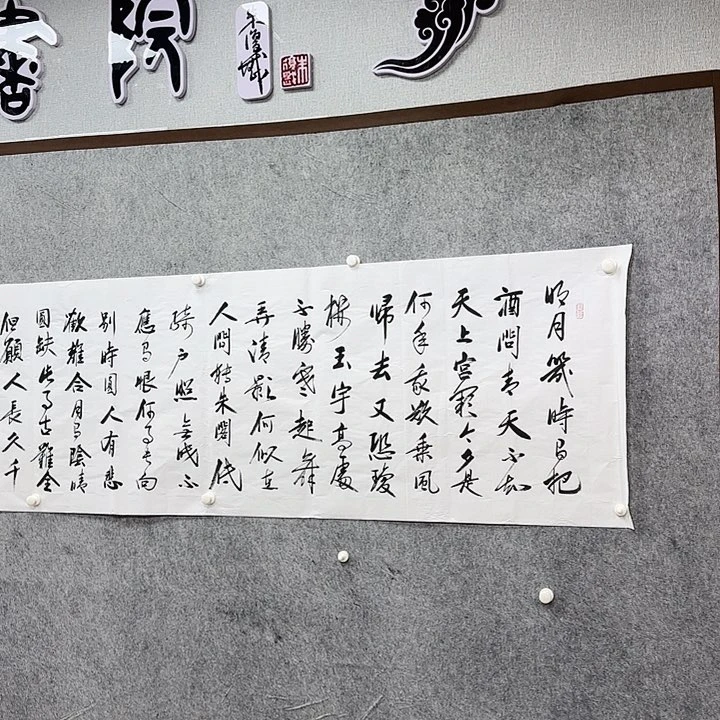 書院
朱復戡
明月幾時有把
酒問青天不知
天上宮闕今夕是
何年我欲乘風
歸去又恐瓊
樓玉宇高處
不勝寒起舞
弄清影何似在
人間轉朱閣低
綺戶照無眠不
應有恨何事長向
別時圓人有悲
歡離合月有陰晴
圓缺此事古難全
但願人長久千